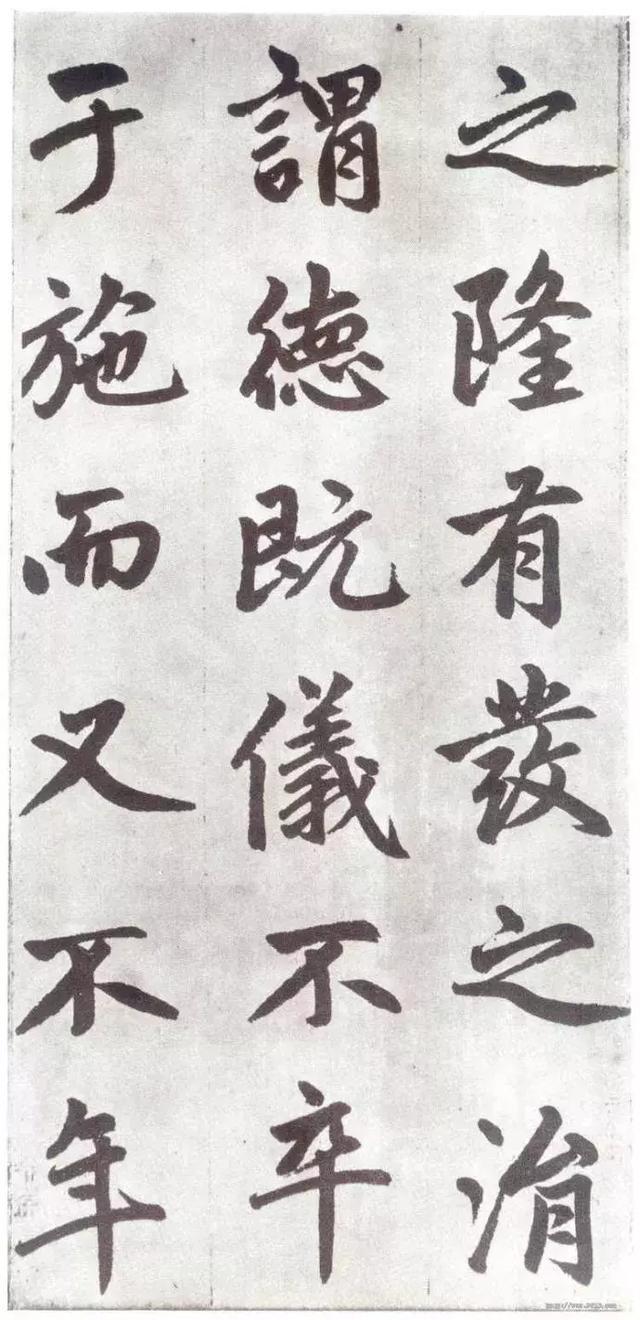 之隆有發之㳙
謂德既儀不卒
于施而又不年